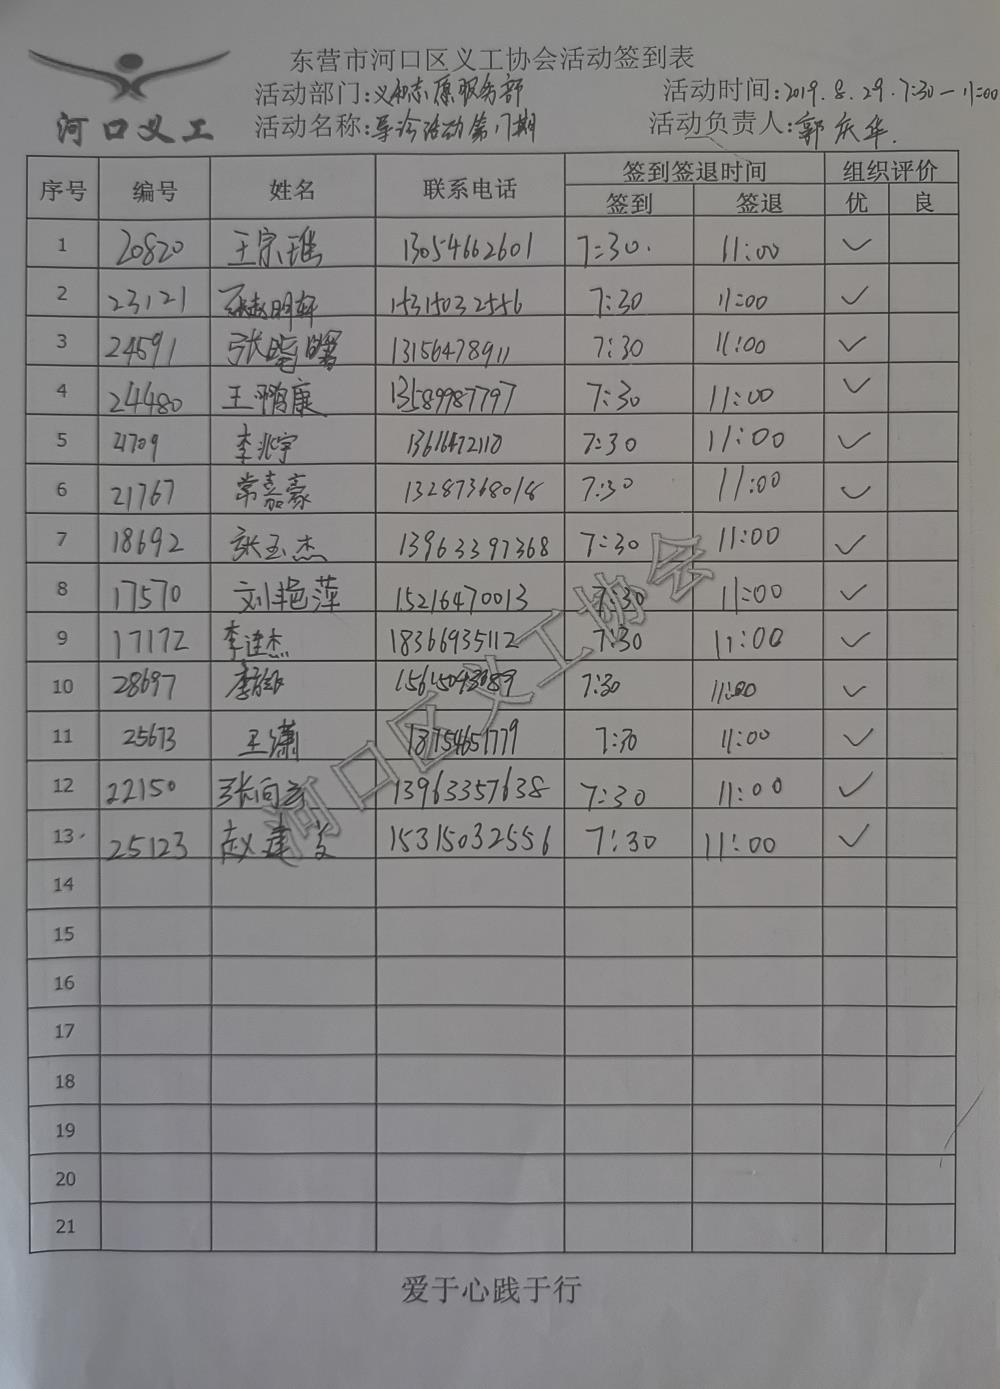 东营市河口区义工协会活动签到表
活动部门:义和志愿服务部 活动时间:2019.8.29.7:30—11:00
河口义工
活动名称:导诊活动第 期 活动负责人:郭庆华.
序号 编号 姓名 联系电话 签到签退时间 组织评价
签到 签退 优 良
1 20820 王宗 13054662601 7:30. 11:00 ✓
2 23121 张赵明轩 15315032556 7:30 11:00 ✓
3 24591 张晓曙 13156478911 7:30 11:00 ✓
4 24480 王鹏康 13589987797 7:30 11:00 ✓
5 21709 李兆宇 13616472110 7:30 11:00 ✓
6 21767 常嘉豪 13287368018 7:30 11:00 ✓
7 18692 张玉杰 13963397368 7:30 11:00 ✓
8 17570 刘艳萍 15216470013 7:30 11:00 ✓
9 17172 李建杰 18366935112 7:30 11:00 ✓
10 28697 李 7:30 11:00 ✓
11 25673 王潇 7:30 11:00 ✓
12 22150 张向 13963357638 7:30 11:00 ✓
13 25123 赵建 15315032556 7:30 11:00 ✓
14
15
16
17
18
19
20
21
河口区义工协会
爱于心践于行